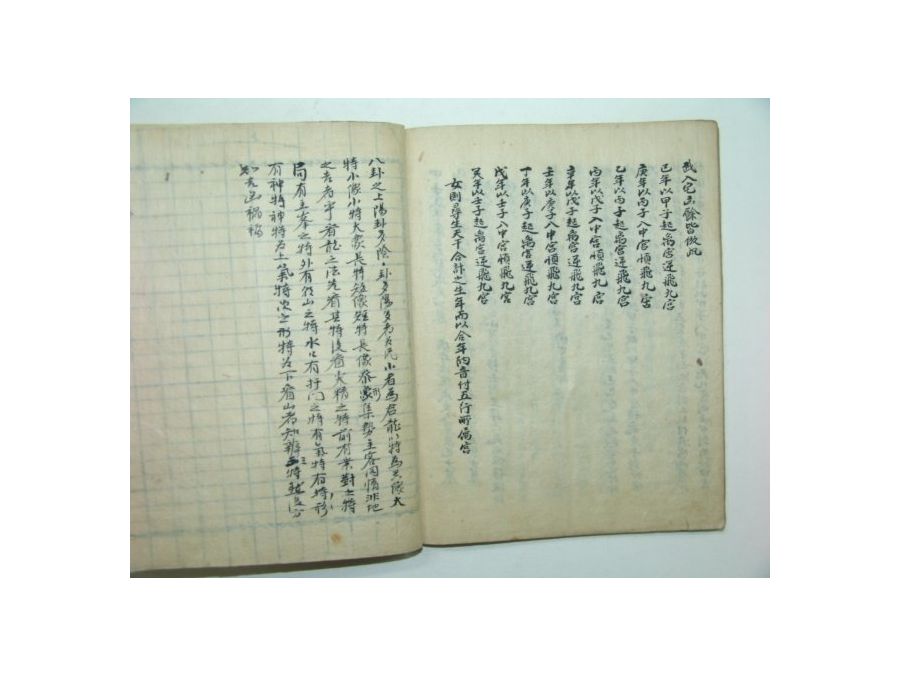 入宅出餘皆倣此
己年以甲子起离宮逆飛九宮
庚年以丙子入中宮順飛九宮
乙年以丙子起离宮逆飛九宮
丙年以戊子入中宮順飛九宮
辛年以戊子起离宮逆飛九宮
壬年以庚子入中宮順飛九宮
丁年以庚子起离宮逆飛九宮
戊年以壬子入中宮順飛九宮
癸年以壬子起离宮逆飛九宮
女則尋生天干合計之生年而以合年納音付五行所屬宮
八卦之上陽卦多陰卦多陽多者為民小者為君龍以特為大
特小小特大衆長特短短特長集勢主客同情非地
之吉者乎看龍之法先看其特後看大精之特前有案對之特
局有主峯之特外有山之特水口有捍門之特有氣特有特形
有神特神特為上氣特次之形特為下看山者知辨三特
知吉凶禍福